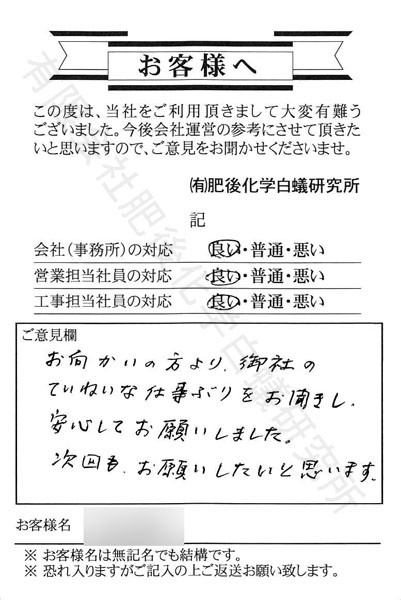 お客様へ
この度は、当社をご利用頂きまして大変有難う
ございました。今後会社運営の参考にさせて頂きた
いと思いますので、ご意見をお聞かせくださいませ。
㈲肥後化学白蟻研究所
記
会社(事務所)の対応 良い・普通・悪い
営業担当社員の対応 良い・普通・悪い
工事担当社員の対応 良い・普通・悪い
ご意見欄
お向かいの方より、御社の
ていねいな仕事ぶりをお聞きし、
安心してお願いしました。
次回も、お願いしたいと思います。
お客様名
※ お客様名は無記名でも結構です。
※ 恐れ入りますがご記入の上ご返送お願い致します。
有限会社肥後化学白蟻研究所